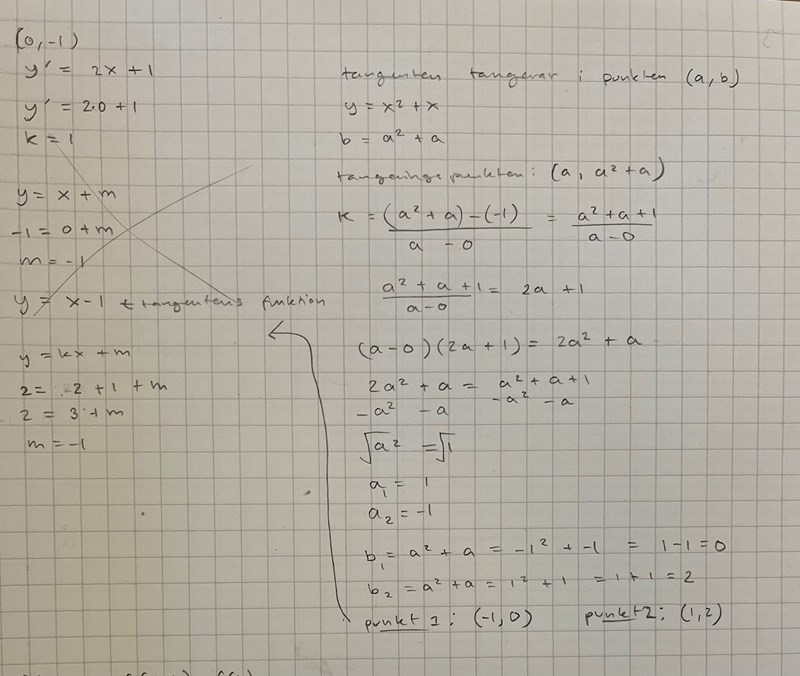 (0, -1)
y' = 2x + 1
y' = 2·0 + 1
k = 1
y = x + m
-1 = 0 + m
m = -1
y = x - 1 ← tangentens funktion
y = kx + m
2 = 2 + 1 + m
2 = 3 + m
m = -1
tangenten tangerar i punkten (a, b)
y = x² + x
b = a² + a
tangeringspunkten: (a, a² + a)
K = (a² + a) - (-1) / a - 0 = a² + a + 1 / a - 0
a² + a + 1 / a - 0 = 2a + 1
(a - 0)(2a + 1) = 2a² + a
2a² + a = a² + a + 1
-a² - a -a² - a
√a² = √1
a₁ = 1
a₂ = -1
b₁ = a² + a = -1² + -1 = 1 - 1 = 0
b₂ = a² + a = 1² + 1 = 1 + 1 = 2
punkt 1: (-1, 0) punkt 2: (1, 2)